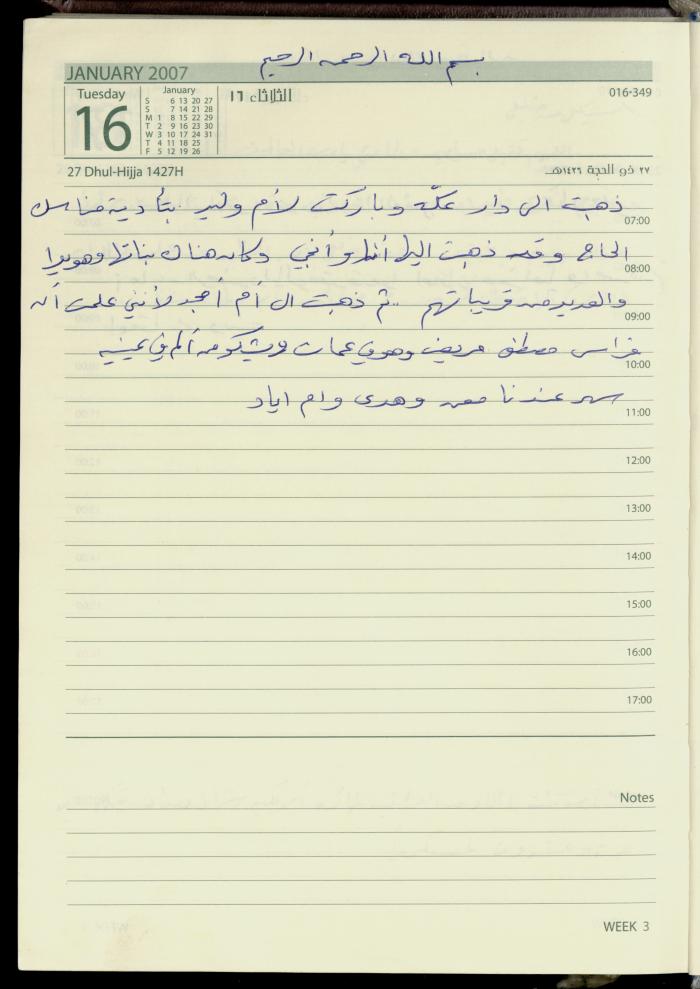 بسم الله الرحمن الرحيم
JANUARY 2007
Tuesday
16
January
S 6 13 20 27
S 7 14 21 28
M 1 8 15 22 29
T 2 9 16 23 30
W 3 10 17 24 31
T 4 11 18 25
F 5 12 19 26
الثلاثاء ١٦
016-349
27 Dhul-Hijja 1427H
٢٧ ذو الحجة ١٤٢٦هـ
ذهبت الى دار عكّه وباركت لأم وليد بتأدية مناسك
07:00
الحاج وقد ذهبت اليها أنا وأختي وكان هناك بناتها وهويدا
08:00
والعديد من قريباتهم ثم ذهبت الى أم أمجد لأنني علمت أن
09:00
فراس مصطفى مريض وهو في عمان ويشكو من ألم في عينيه
10:00
سهر عندنا معن وهدى وام اياد
11:00
12:00
13:00
14:00
15:00
16:00
17:00
Notes
WEEK 3